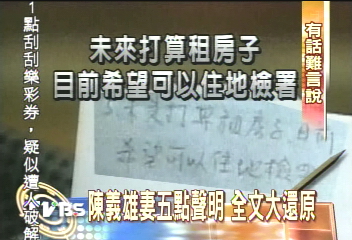 未來打算租房子
目前希望可以住地檢署
有話難言說
1點刮刮樂彩券，疑似遭
破解
5.未來打算租房子目前
希望可以住地檢
TVBS
陳義雄妻五點聲明 全文大還原